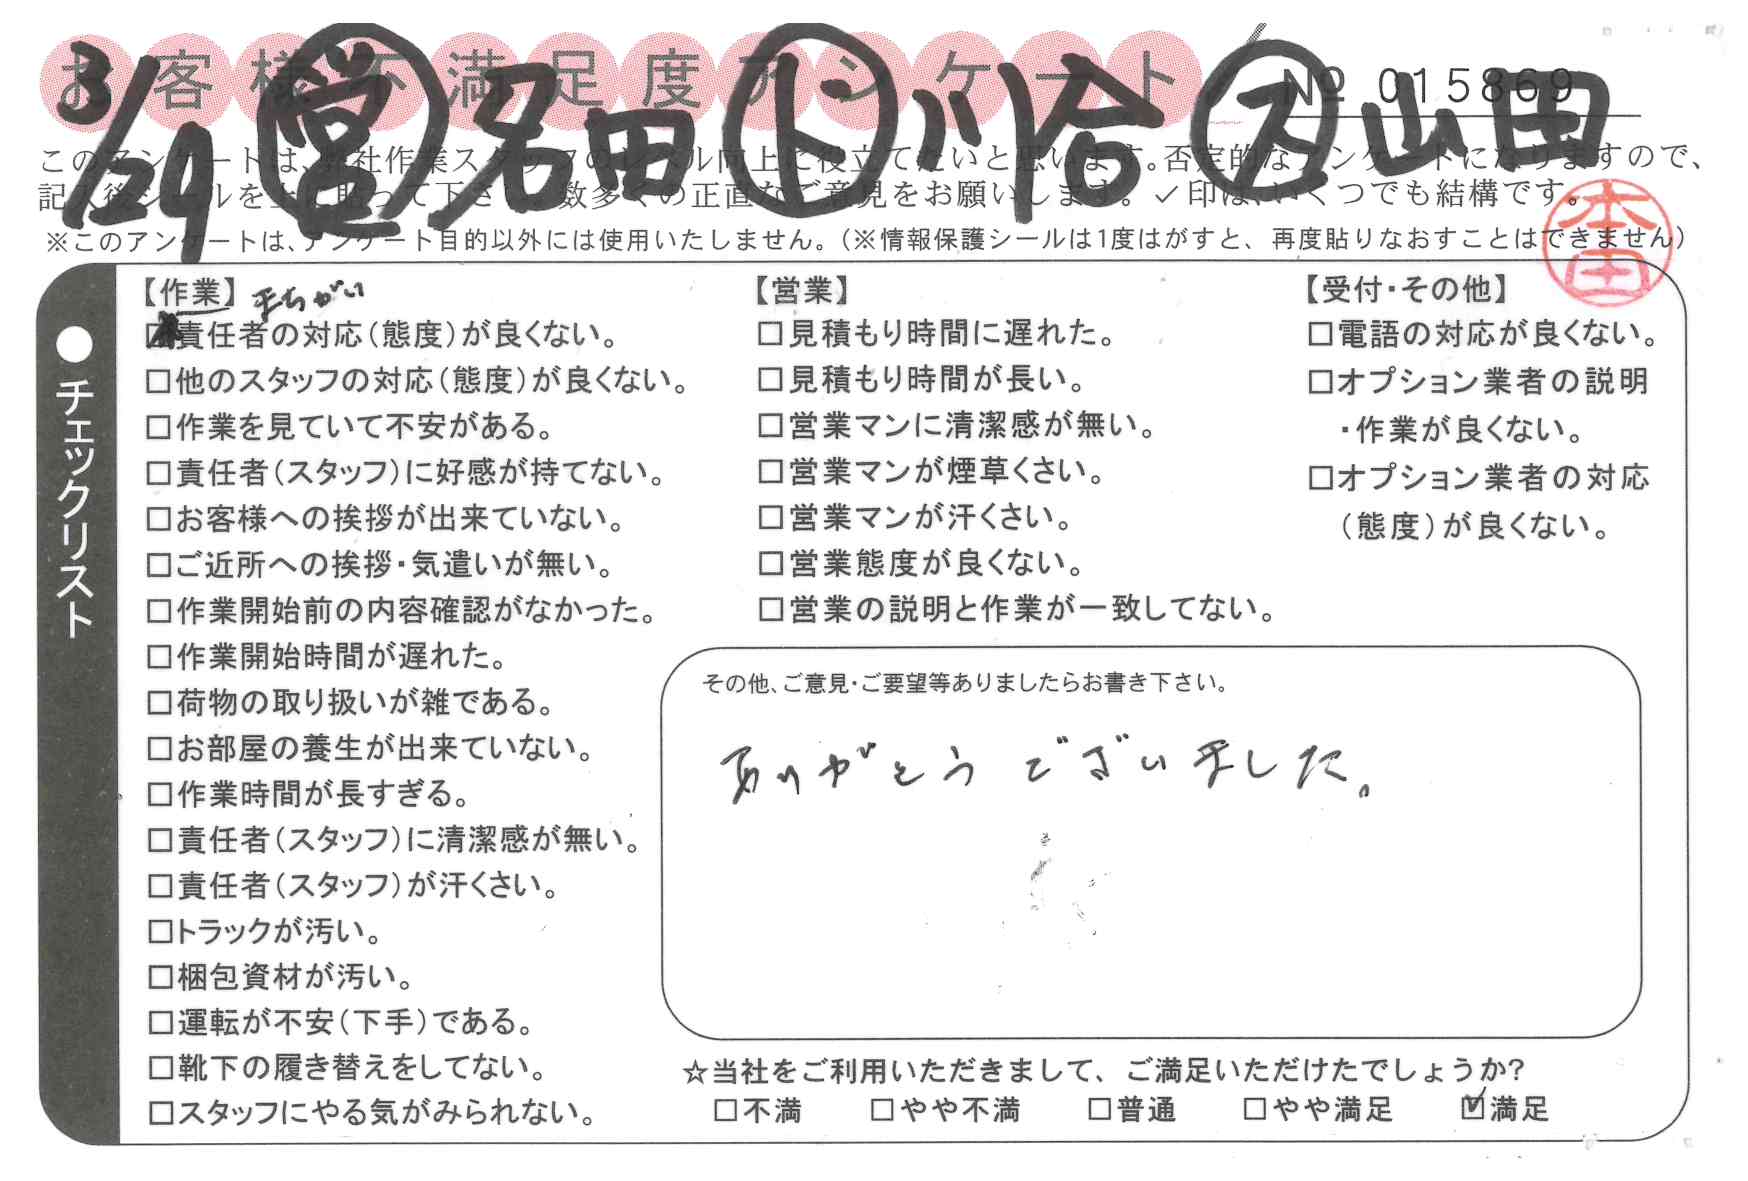 お客様不満足度アンケート
№ 015869
3/29 営 名田 ト 川合 ス 山田
このアンケートは、弊社作業スタッフのレベル向上に役立てたいと思います。否定的なアンケートになりますので、
記入後シールを上に貼って下さい。数多くの正直なご意見をお願いします。✓印は、いくつでも結構です。
※このアンケートは、アンケート目的以外には使用いたしません。(※情報保護シールは1度はがすと、再度貼りなおすことはできません)
本田
●チェックリスト
【作業】 まちがい
責任者の対応(態度)が良くない。
□他のスタッフの対応(態度)が良くない。
□作業を見ていて不安がある。
□責任者(スタッフ)に好感が持てない。
□お客様への挨拶が出来ていない。
□ご近所への挨拶・気遣いが無い。
□作業開始前の内容確認がなかった。
□作業開始時間が遅れた。
□荷物の取り扱いが雑である。
□お部屋の養生が出来ていない。
□作業時間が長すぎる。
□責任者(スタッフ)に清潔感が無い。
□責任者(スタッフ)が汗くさい。
□トラックが汚い。
□梱包資材が汚い。
□運転が不安(下手)である。
□靴下の履き替えをしてない。
□スタッフにやる気がみられない。
【営業】
□見積もり時間に遅れた。
□見積もり時間が長い。
□営業マンに清潔感が無い。
□営業マンが煙草くさい。
□営業マンが汗くさい。
□営業態度が良くない。
□営業の説明と作業が一致してない。
【受付・その他】
□電話の対応が良くない。
□オプション業者の説明
・作業が良くない。
□オプション業者の対応
(態度)が良くない。
その他、ご意見・ご要望等ありましたらお書き下さい。
ありがとうございました。
☆当社をご利用いただきまして、ご満足いただけたでしょうか?
□不満 □やや不満 □普通 □やや満足 ☑満足